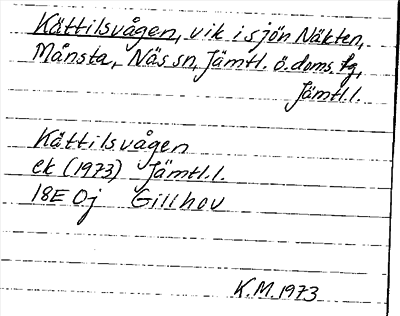 Kättilsvågen, vik i sjön Näkten,
Månsta, Näs sn, Jämtl. ö. doms. fg,
Jämtl.l.
Kättilsvågen
ek (1973) Jämtl.l.
18E 0j Gillhov
K.M. 1973